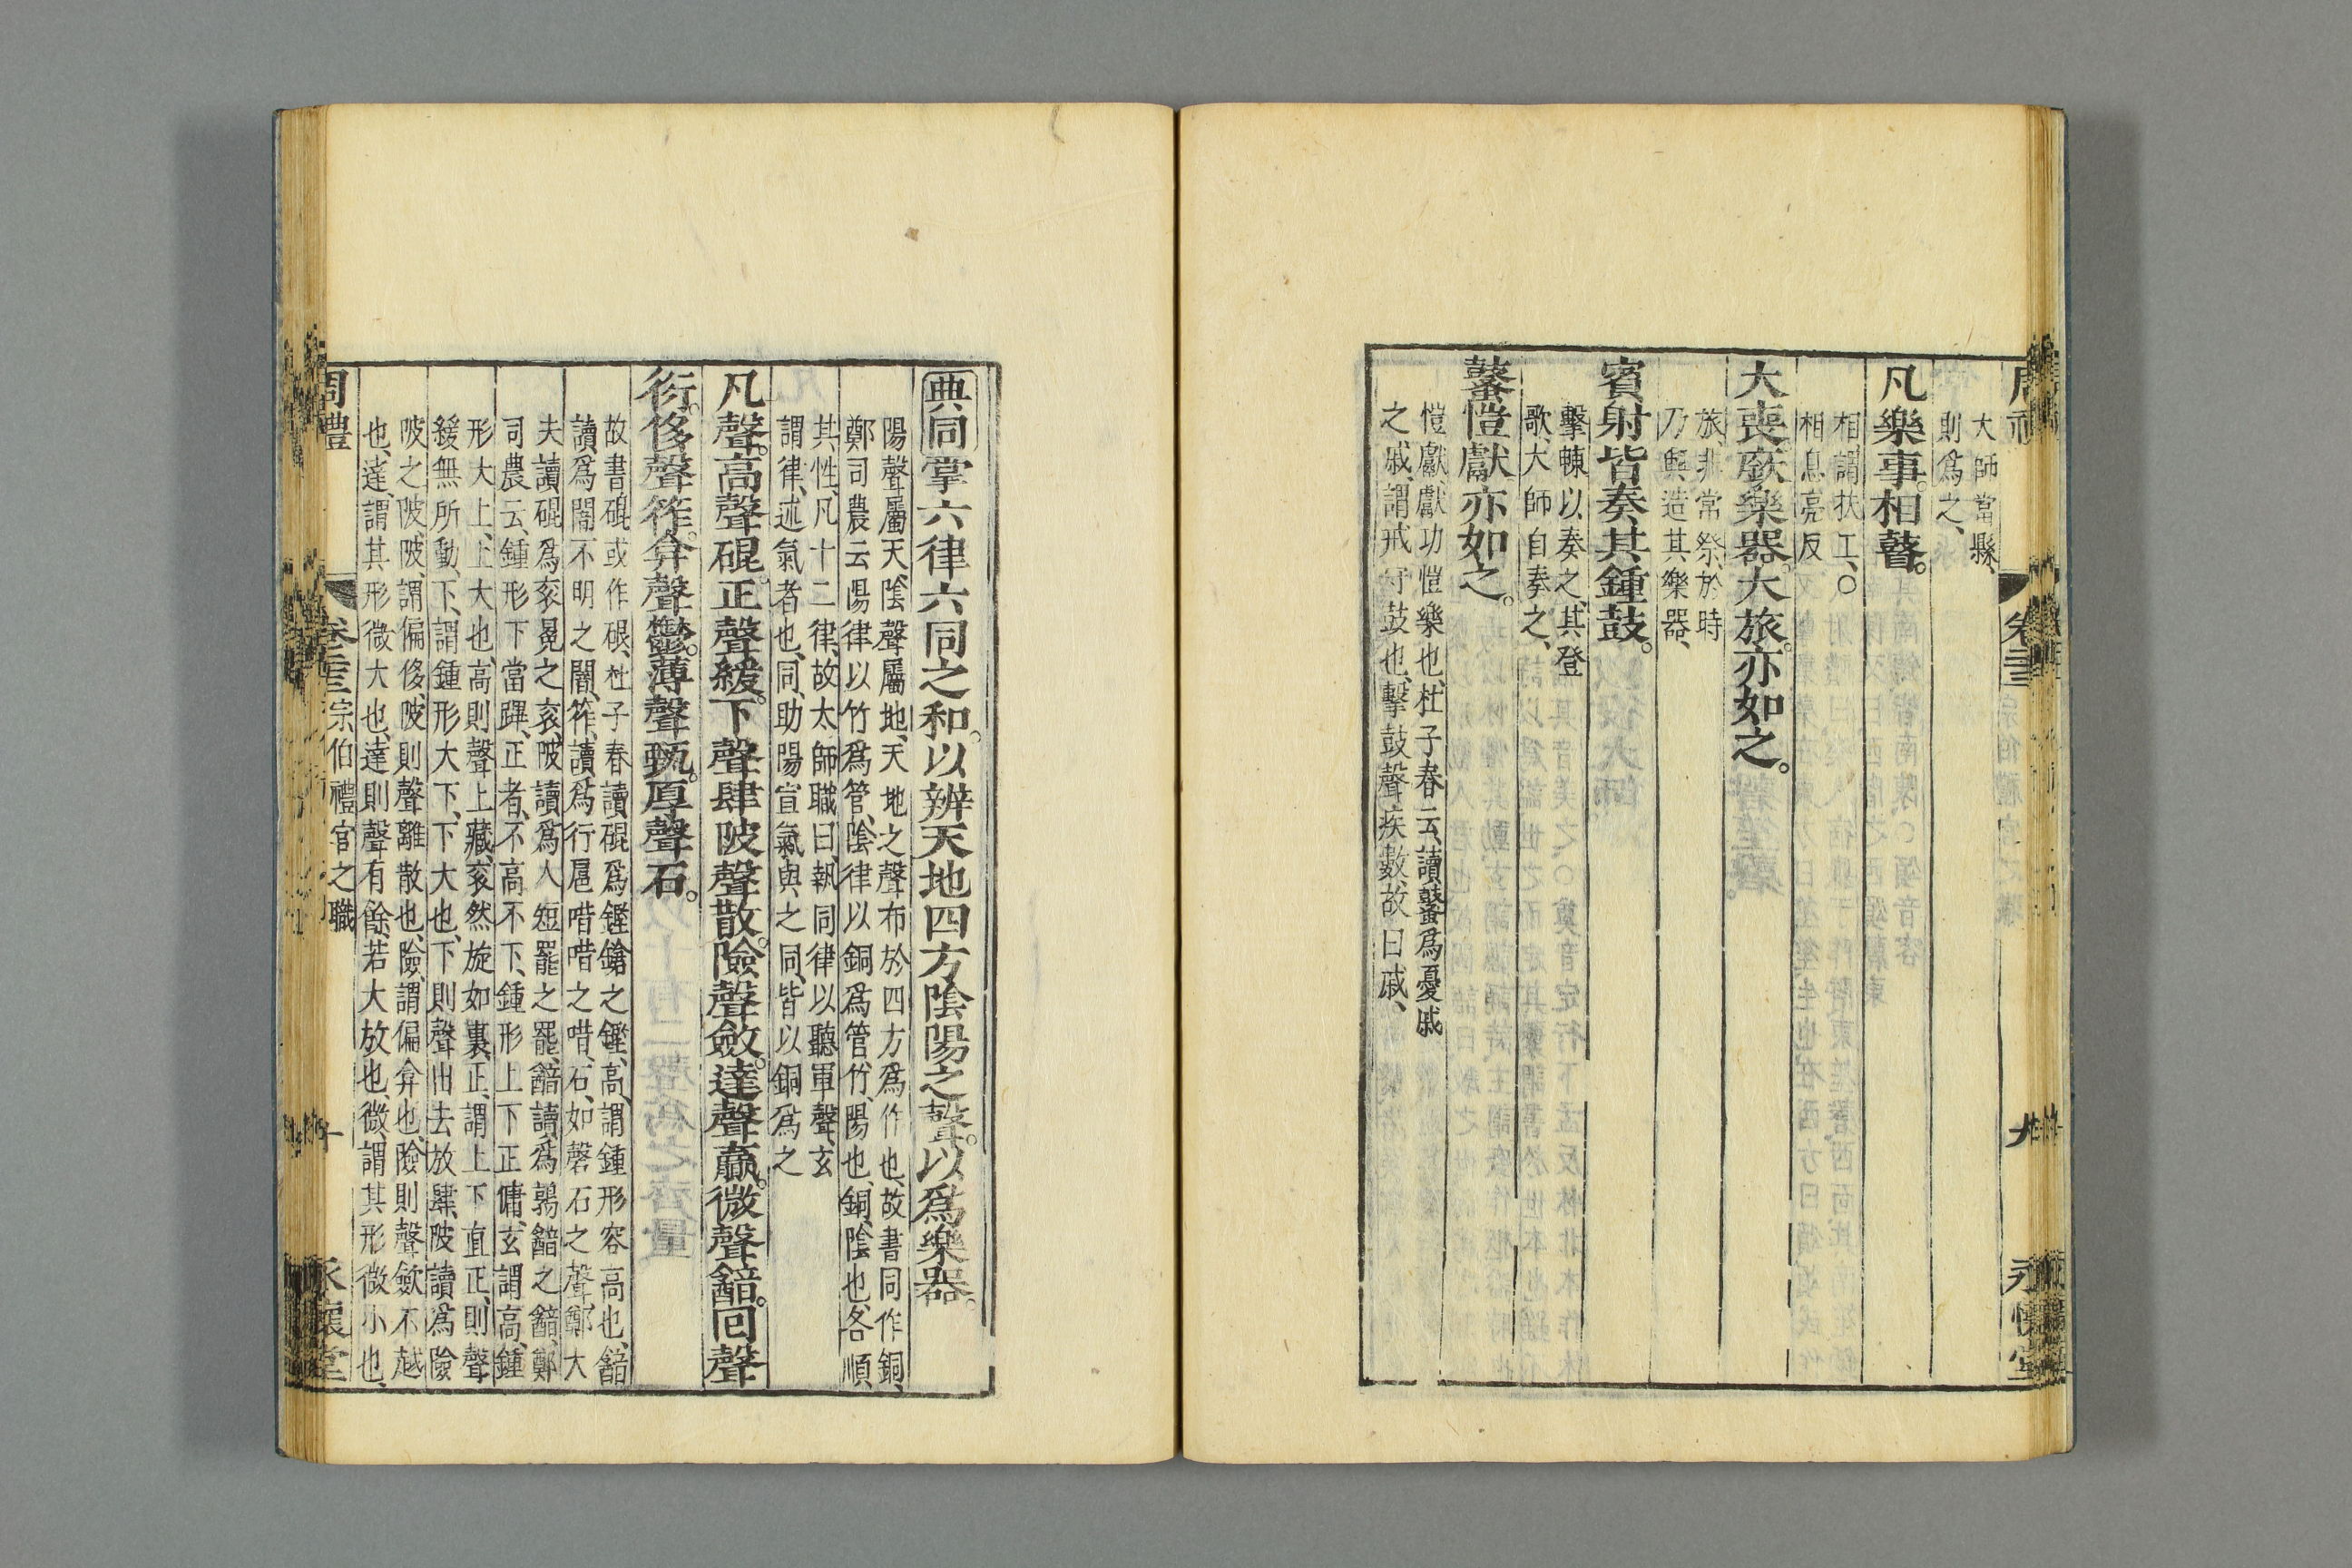 大師當縣、
則爲之、
凡樂事。相瞽。
相謂扶工、○
相息亮反
大喪廞樂器。大旅。亦如之。
旅、非常祭、於時
乃興造其樂器、
賓射皆奏其鍾鼓。
擊朄以奏之、其登
歌、大師自奏之、
鼜愷獻亦如之。
愷獻、獻功愷樂也、杜子春云、讀鼜爲憂戚
之戚、謂戒守鼓也、擊鼓聲疾數、故曰戚、
典同掌六律六同之和。以辨天地四方陰陽之聲。以爲樂器。
陽聲屬天、陰聲屬地、天地之聲布於四方爲作也、故書同作銅、
鄭司農云陽律以竹爲管、陰律以銅爲管、竹、陽也、銅、陰也、各順
其性、凡十二律、故太師職曰、執同律以聽軍聲、玄
謂律、述氣者也、同、助陽宣氣與之同、皆以銅爲之
凡聲。高聲䃂。正聲緩。下聲肆。陂聲散。險聲斂。達聲贏。微聲韽。回聲
衍。侈聲筰。弇聲鬱。薄聲甄。厚聲石。
故書䃂或作硍、杜子春讀䃂爲鏗鎗之鏗、高、謂鍾形容高也、韽
讀爲闇不明之闇、筰、讀爲行扈唶唶之唶、石、如磬石之聲、鄭大
夫讀䃂爲衮冕之衮、陂讀爲人短罷之罷、韽讀爲鶉韽之韽、鄭
司農云、鍾形下當踔、正者、不高不下、鍾形上下正傭、玄謂高、鍾
形大上、上大也、高則聲上藏、衮然旋如裏、正、謂上下直正、則聲
緩無所動、下、謂鍾形大下、下大也、下則聲出去放肆、陂讀爲險
陂之陂、陂、謂偏侈、陂則聲離散也、險、謂偏弇也、險則聲斂不越
也、達、謂其形微大也、達則聲有餘、若大放也、微、謂其形微小也、
周禮 卷二十三 宗伯禮官之職 十 永懷堂